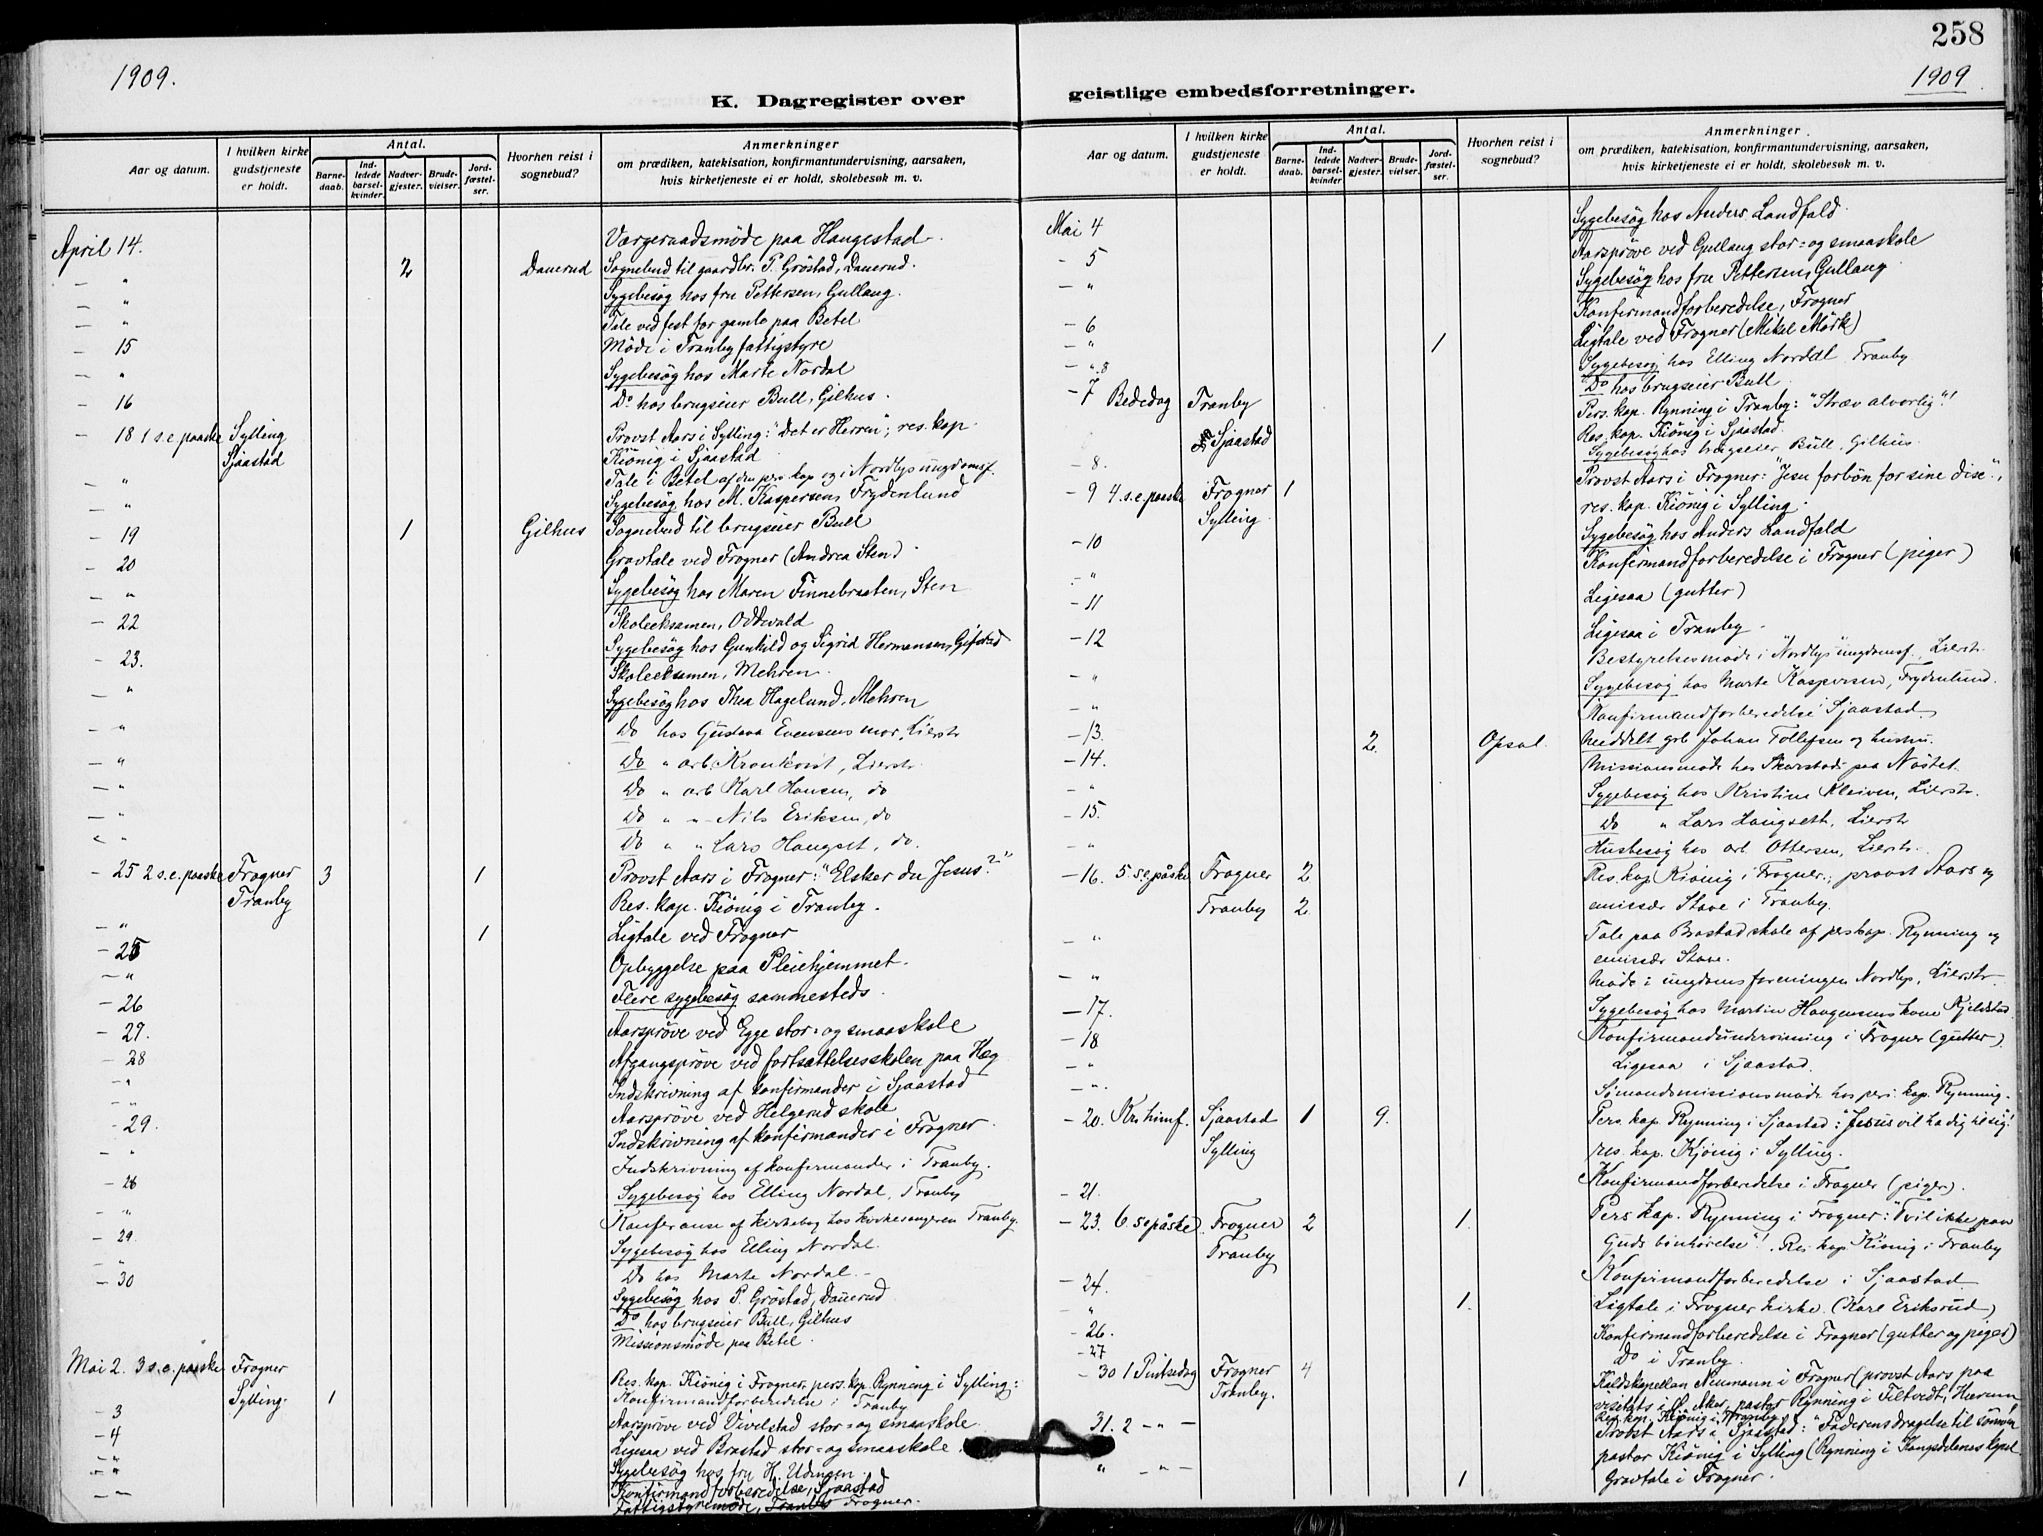 258
1909.
1909
K. Dagregister over geistlige embedsforretninger.
Aar og datum.
I hvilken kirke gudstjeneste er holdt.
Antal.
Barnedaab.
Indledede barselkvinder.
Nadvergjester.
Brudevielser.
Jordfæstelser.
Hvorhen reist i sognebud?
Anmerkninger
om prædiken, katekisation, konfirmantundervisning, aarsaken,
hvis kirketjeneste ei er holdt, skolebesøk m. v.
April 14. Værgeraadsmöde paa Haugestad.
- " 2 Dauerud Sognebud til gaardbr. P. Gröstad, Dauerud.
- " Sygebesög hos fru Pettersen, Gullaug.
- " Tale ved fest for gamle paa Betel
- 15 Möde i Tranby fattigstyre
- " Sygebesög hos Marte Nordal
- 16 Do hos brugseier Bull, Gilhus.
- 18 1 s.e. paaske Sylling Provst Aars i Sylling: "Det er Herren"; res. kap.
Sjaastad Kiönig i Sjaastad
- " Tale i Betel af den pers. kap og i Nordlys ungdomsf.
- " Sygebesög hos M. Kaspersen, Frydenlund
- 19 1 Gilhus Sognebud til brugseier Bull
- 20 Gravtale ved Frogner (Andrea Sten).
- " Sygebesög hos Maren Finnebraaten, Sten
- 22 Skoleeksamen, Oddevald
Sygebesög hos Gunhild og Sigrid Hermansen, Gifstad
- 23. Skoleeksamen, Mehren.
- " Sygebesög hos Thea Hagelund, Mehren
- " Do hos Gustava Evensens mor, Lierstr
- " Do " arb. Kronkvist, Lierstr.
- " Do " arb Karl Hansen, do
- " Do " " Nils Eriksen, do
" " Do " " Lars Haugset, do.
- 25 2 s.e. paaske Frogner 3 1 Provst Aars i Frogner: "Elsker du Jesus?"
Tranby Res. kap. Kiönig i Tranby.
- " 1 Ligtale ved Frogner
- 25 Opbyggelse paa Pleiehjemmet.
- " Flere sygebesög sammesteds.
- 26 Aarspröve ved Egge stor- og smaaskole
- 27. Afgangspröve ved fortsættelsesskolen paa Hæg
- 28 Indskrivning af konfirmander i Sjaastad
- " Aarspröve ved Helgerud skole
- 29. Indskrivning af konfirmander i Frogner.
" Indskrivning af konfirmander i Tranby.
- 28 Sygebesög hos Elling Nordal, Tranby
- " Konferanse af kirkebog hos kirkesangeren Tranby.
- 29. Sygebesög hos Elling Nordal.
- " Do hos Marte Nordal.
- 30 Sygebesög hos P. Gröstad, Dauerud
Do hos brugseier Bull, Gilhus
Missionsmöde paa Betel.
Mai 2. 3 s.e. paaske Frogner Res. kap. Kiönig i Frogner, pers. kap. Rynning i Sylling:
Sylling. 1 Konfirmandforberedelse i Tranby
- 3 Aarspröve ved Vivelstad stor- og smaaskole.
- 4 Ligesaa ved Brastad stor- og smaaskole.
- " Sygebesög hos fru H. Udengen.
- " Konfirmandforberedelse, Sjaastad
- " Fattigstyremöde, Frogner.
Mai 4 Sygebesög hos Anders Landfald.
- 5 Aarspröve ved Gullaug stor- og smaaskole
- " Sygebesög hos fru Pettersen, Gullaug
Konfirmandforberedelse, Frogner
- 6 1 Ligtale ved Frogner (Mikel Mörk)
- " Sygebesög hos Elling Norddl Tranby
- " 8 Do hos brugseier Bull
- 7 Bededag Tranby Pers. kap. Rynning i Tranby: "Stræv alvorlig"!
Sjaastad Res. kap. Kiönig i Sjaastad.
- 8. Sygebesög hos brugseier Bull, Gilhus.
- 9 4. s.e. paaske Frogner 1 Provst Aars i Frogner: "Jesu forbön for sine dise",
Sylling. res. kap. Kiönig i Sylling.
- 10 Sygebesög hos Anders Landfald
- " Konfirmandforberedelse i Frogner (piger)
- 11 Ligesaa (gutter)
- 12 Ligesaa i Tranby.
Bestyrelsesmöde i "Nordlys" ungdomsf. Lierstr.
- " Sygebesög hos Marte Kaspersen, Frydenlund.
- " Konfirmandforberedelse Sjaastad.
- 13. 2. Opsal. Meddelt grb Johan Tollefsen og hustru.
- 14. Missionsmöde hos Skarstads paa Nöstet.
- " Sygebesög hos Kristine Kleiven, Lierstr.
- 15. Do " Lars Haugseth, Lierstr
- " Husbesög hos arb. Ottersen, Lierstr.
- 16. 5. s.e. påske Frogner 2 Res. kap Kiönig i Frogner.; provst Aars og
Tranby 2 emissær Stave i Tranby.
- " Tale paa Brastad skole af pers kap. Rynning og
emissær Stave.
- " Möde i ungdomsforeningen Nordlys, Lierstr.
- 17. Sygebesög hos Martin Haugensens kone Kjeldstad
- 18 Konfirmandundervisning i Frogner (gutter)
- " Ligesaa i Sjaastad.
- " Sömandsmissionsmöde hos pers. kap. Rynning.
- 20. Kr. himf. Sjaastad 1 9. Pers. kap. Rynning i Sjaastad: "Jesus vil ha dig til sig"!
Sylling res. kap. Kjönig i Sylling.
- 21. Konfirmandforberedelse i Frogner (piger).
- 23. 6. se påske Frogner 2 1. Pers kap. Rynning i Frogner: Tvil ikke paa
Tranby Guds bönhörelse"!. Res. kap Kiönig i Tranby
- 24. Konfirmandforberedelse i Sjaastad
" 1. Ligtale i Frogner kirke. (Karl Eriksrud)
- 26. Konfirmandforberedelse i Frogner (gutter og piger)
- 27 Do i Tranby.
- 30 1 Pintsedag Frogner 4 Kaldskapellan Neumann i Frogner (provst Aars paa
Tranby. visitats i Ø. Aker, pastor Rynning i Filtvedt, Hurum
Res. kap. Kiönig i Tranby).
31. 2 - " - Provst Aars i Sjaastad: "Faderens dragelse til sönnen
pastor Kiönig i Sylling (Rynning i Kongsdelenes kapel
" - " - 1 Gravtale i Frogner.